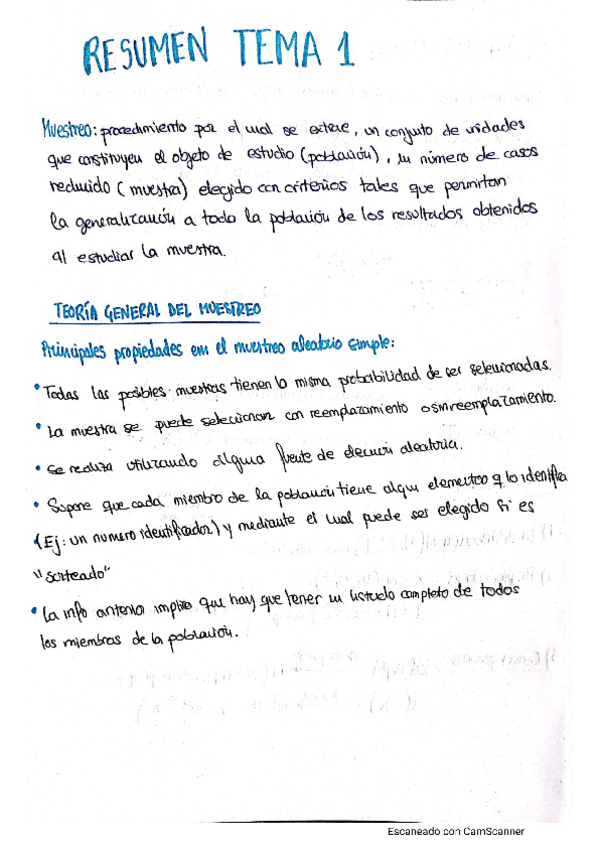 RESUMEN TEMA 1
Muestreo: procedimiento por el cual se extrae, un conjunto de unidades
que constituyen el objeto de estudio (población), un número de casos
reducido (muestra) elegido con criterios tales que permitan
la generalización a toda la población de los resultados obtenidos
al estudiar la muestra.
TEORÍA GENERAL DEL MUESTREO
Principales propiedades em el muestreo aleatorio simple:
• Todas las posibles muestras tienen la misma probabilidad de ser seleccionadas.
• La muestra se puede seleccionar con reemplazamiento o sin reemplazamiento.
• Se realiza utilizando alguna fuente de elección aleatoria.
• Supone que cada miembro de la población tiene algún elemento q lo identifica
(Ej: un numero identificador) y mediante el cual puede ser elegido si es
"sorteado"
• La info anterior implica que hay que tener un listado completo de todos
los miembros de la población.
Escaneado con CamScanner